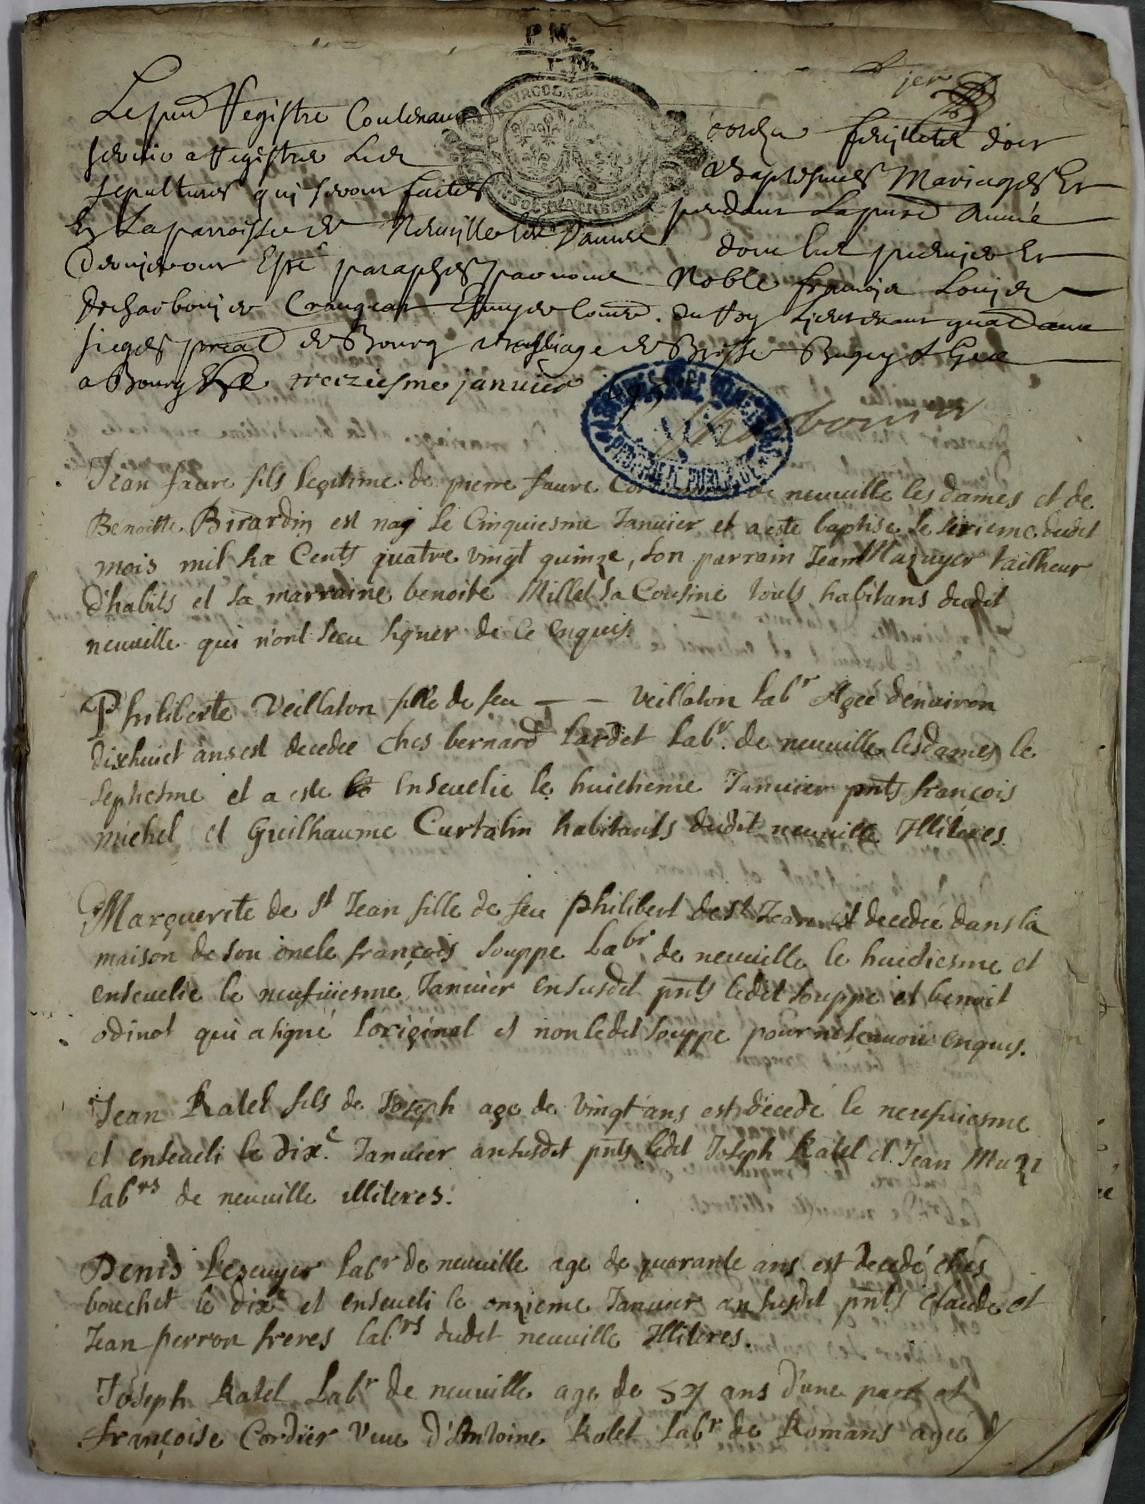 P.M.
1er
Le pnt Registre Contenant onze feuillets doit
servir a Registrer Les Baptesmes Mariages Et
sepultures qui seront faites pendant La pnte Année
En La parroisse de Neuville les Dames dont les premier Et
dernier ont Esté paraphes par nous Noble françois Louis de
de Charbonnier Crangeac Escuyer Conser. du Roy Lieutenant gnal aux
sieges prealx de Bourg Bailliage de Bresse Bugey & Gex
a Bourg Ce treiziesme janvier
Charbonnier
Jean faure fils legitime de pierre faure de neuville les dames et de
Benoitte Birardin est nay le Cinquiesme Janvier et a este baptise le sixieme dudit
mois mil six Cents quatre vingt quinze, son parrain Jean Mazuyer tailheur
d'habits et sa marraine benoite Millet sa Cousine touts habitans dudit
neuville qui n'ont sceu signer de ce enquis.
Philiberte Veillaton fille de feu — — veillaton labr Agée d'enuiron
dixhuict ans est decedee ches bernard Lardet Labr. de neuville lesdames le
septiesme et a este enseuelie le huictieme Januier pnts françois
michel et Guilhaume Curtalin habitants dudit neuville Illiteres.
Marguerite de st Jean fille de feu philibert de st Jean est decedée dans la
maison de son oncle françois souppe Labr de neuville le huictiesme et
enseuelie le neufuiesme Januier en susdit pnts ledit souppe et benoit
odinot qui a signé l'original et non ledit souppe pour ne scauoir enquis.
Jean Ratel fils de Joseph age de vingt ans est décedé le neufuiesme
et enseueli le dixe. Januier an susdit pnts ledit Joseph Ratel et Jean
Labrs de neuville illiteres.
Denis Lescuyer Labr de neuville age de quarante ans est decedé ches
bouchet le dixe et enseueli le onzieme Januier an susdit pnts claude et
Jean perron freres labrs dudit neuville Illiteres.
Joseph Ratel Labr de neuville age de 57 ans d'une part et
françoise Cordier veuue d'Antoine Rolet labr de Romans agée d